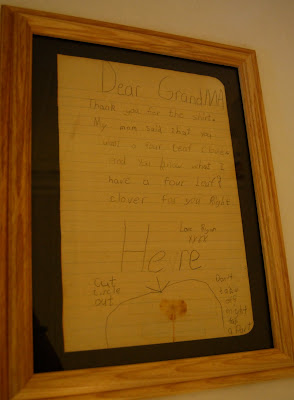 Dear GrandMA
Thank you for the shirt.
My mom said that you
want a four Leaf Clover
and you know what I
have a four Leaf
clover for you Right
Love Ryan
xxxx
Here
Cut
circle
out
Don't
take
off
might
fall
apart